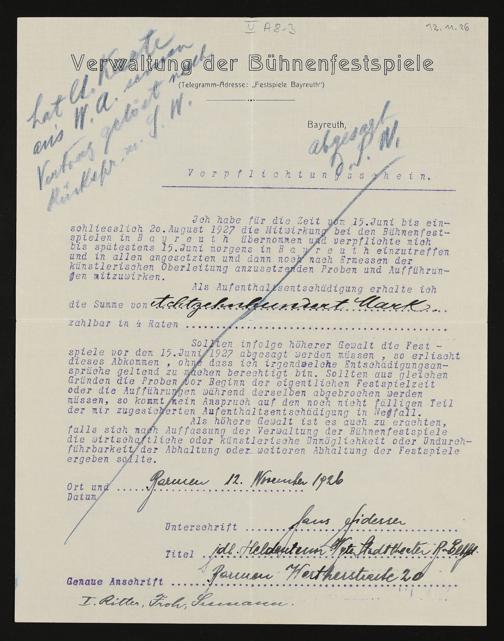 V A 8-3
12.11.26
Verwaltung der Bühnenfestspiele
(Telegramm-Adresse: „Festspiele Bayreuth")
hat lt. Karte
aus W. A. schon
Vertrag gelöst nach
Rückspr. m. S. W.
Bayreuth,
abgesagt
S. W.
Verpflichtungsschein.
Ich habe für die Zeit vom 15.Juni bis ein-
schliesslich 20.August 1927 die Mitwirkung bei den Bühnenfest-
spielen in Bayreuth übernommen und verpflichte mich
bis spätestens 15.Juni morgens in Bayreuth einzutreffen
und in allen angesetzten und dann noch nach Ermessen der
künstlerischen Oberleitung anzusetzenden Proben und Aufführun-
gen mitzuwirken.
Als Aufenthaltsentschädigung erhalte ich
die Summe von Achtzehnhundert Mark
zahlbar in 4 Raten
Sollten infolge höherer Gewalt die Fest-
spiele vor dem 15.Juni 1927 abgesagt werden müssen , so erlischt
dieses Abkommen , ohne dass ich irgendwelche Entschädigungsan-
sprüche geltend zu machen berechtigt bin. Sollten aus gleichen
Gründen die Proben vor Beginn der eigentlichen Festspielzeit
oder die Aufführungen während derselben abgebrochen werden
müssen, so kommt mein Anspruch auf den noch nicht fälligen Teil
der mir zugesicherten Aufenthaltsentschädigung in Wegfall.
Als höhere Gewalt ist es auch zu erachten,
falls sich nach Auffassung der Verwaltung der Bühnenfestspiele
die wirtschaftliche oder künstlerische Unmöglichkeit oder Undurch-
führbarkeit der Abhaltung oder weiteren Abhaltung der Festspiele
ergeben sollte.
Ort und Datum Barmen 12. November 1926
Unterschrift Hans
Titel jdl. Heldentenor Stadttheater B-Elbf.
Genaue Anschrift Barmen Wertherstraße 20
I. Ritter, Froh, Seemann.